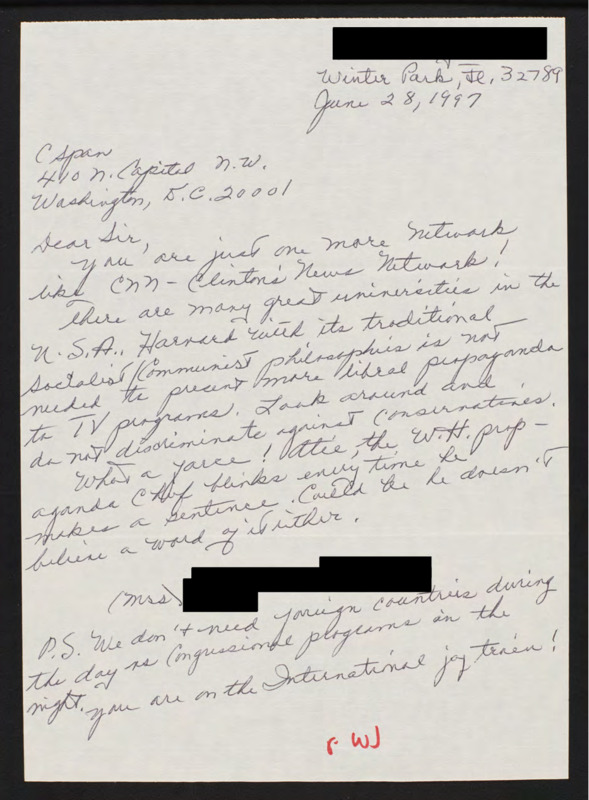 Winter Park, Fl. 32789
June 28, 1997
C Span
400 N. Capitol N.W.
Washington, D.C. 20001
Dear Sir,
You are just one more Network
like CNN - Clinton's News Network!
There are many great universities in the
U.S.A.. Harvard with its traditional
Socialist/Communist philosophies is not
needed to present more libral propaganda
to TV programs. Look around and
do not discriminate against conservatives.
What a farce! the W.H. prop-
aganda Chief blinks every time he
makes a sentence. Could be he doesn't
believe a word of it either.
(Mrs)
P.S. We don't need foreign countries during
the day vs Congressional programs in the
night.
You are on the International joy train!
r WJ